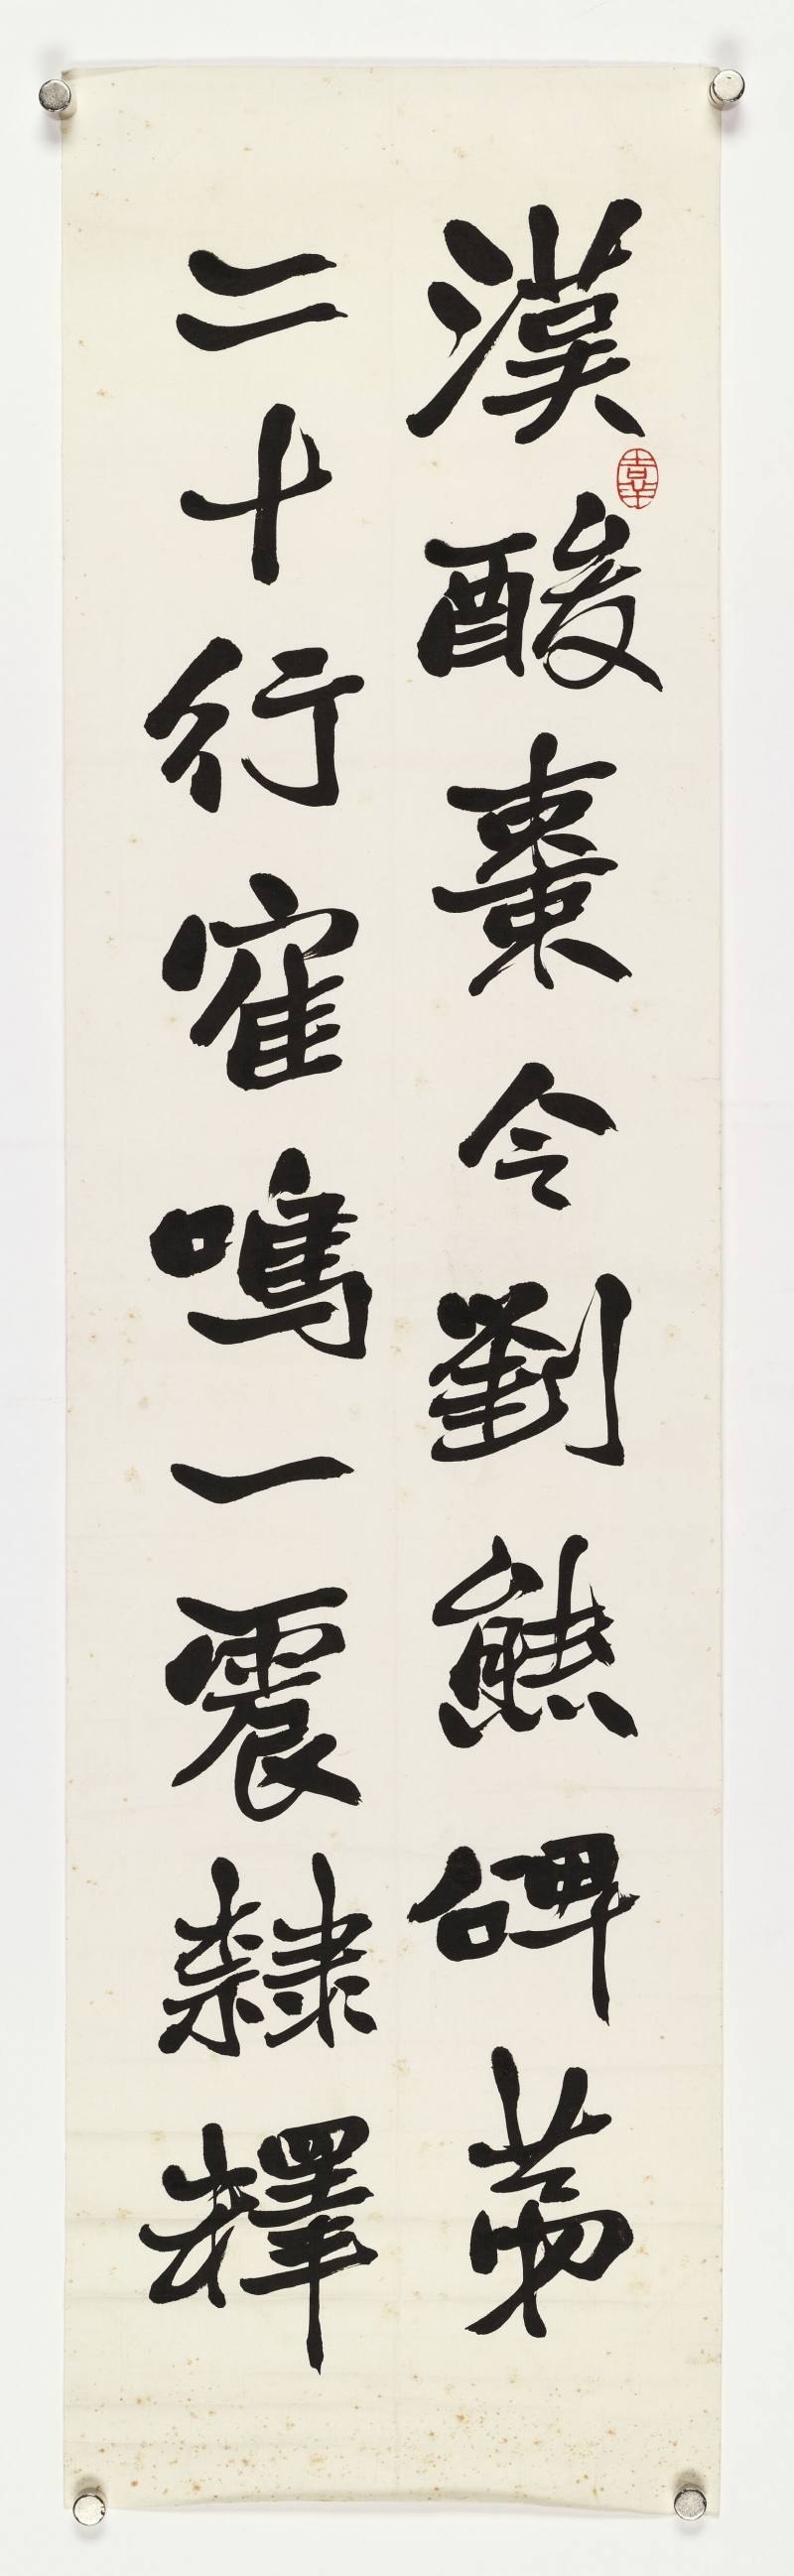 漢酸棗令劉熊碑苐
二十行寉鳴一震隸釋